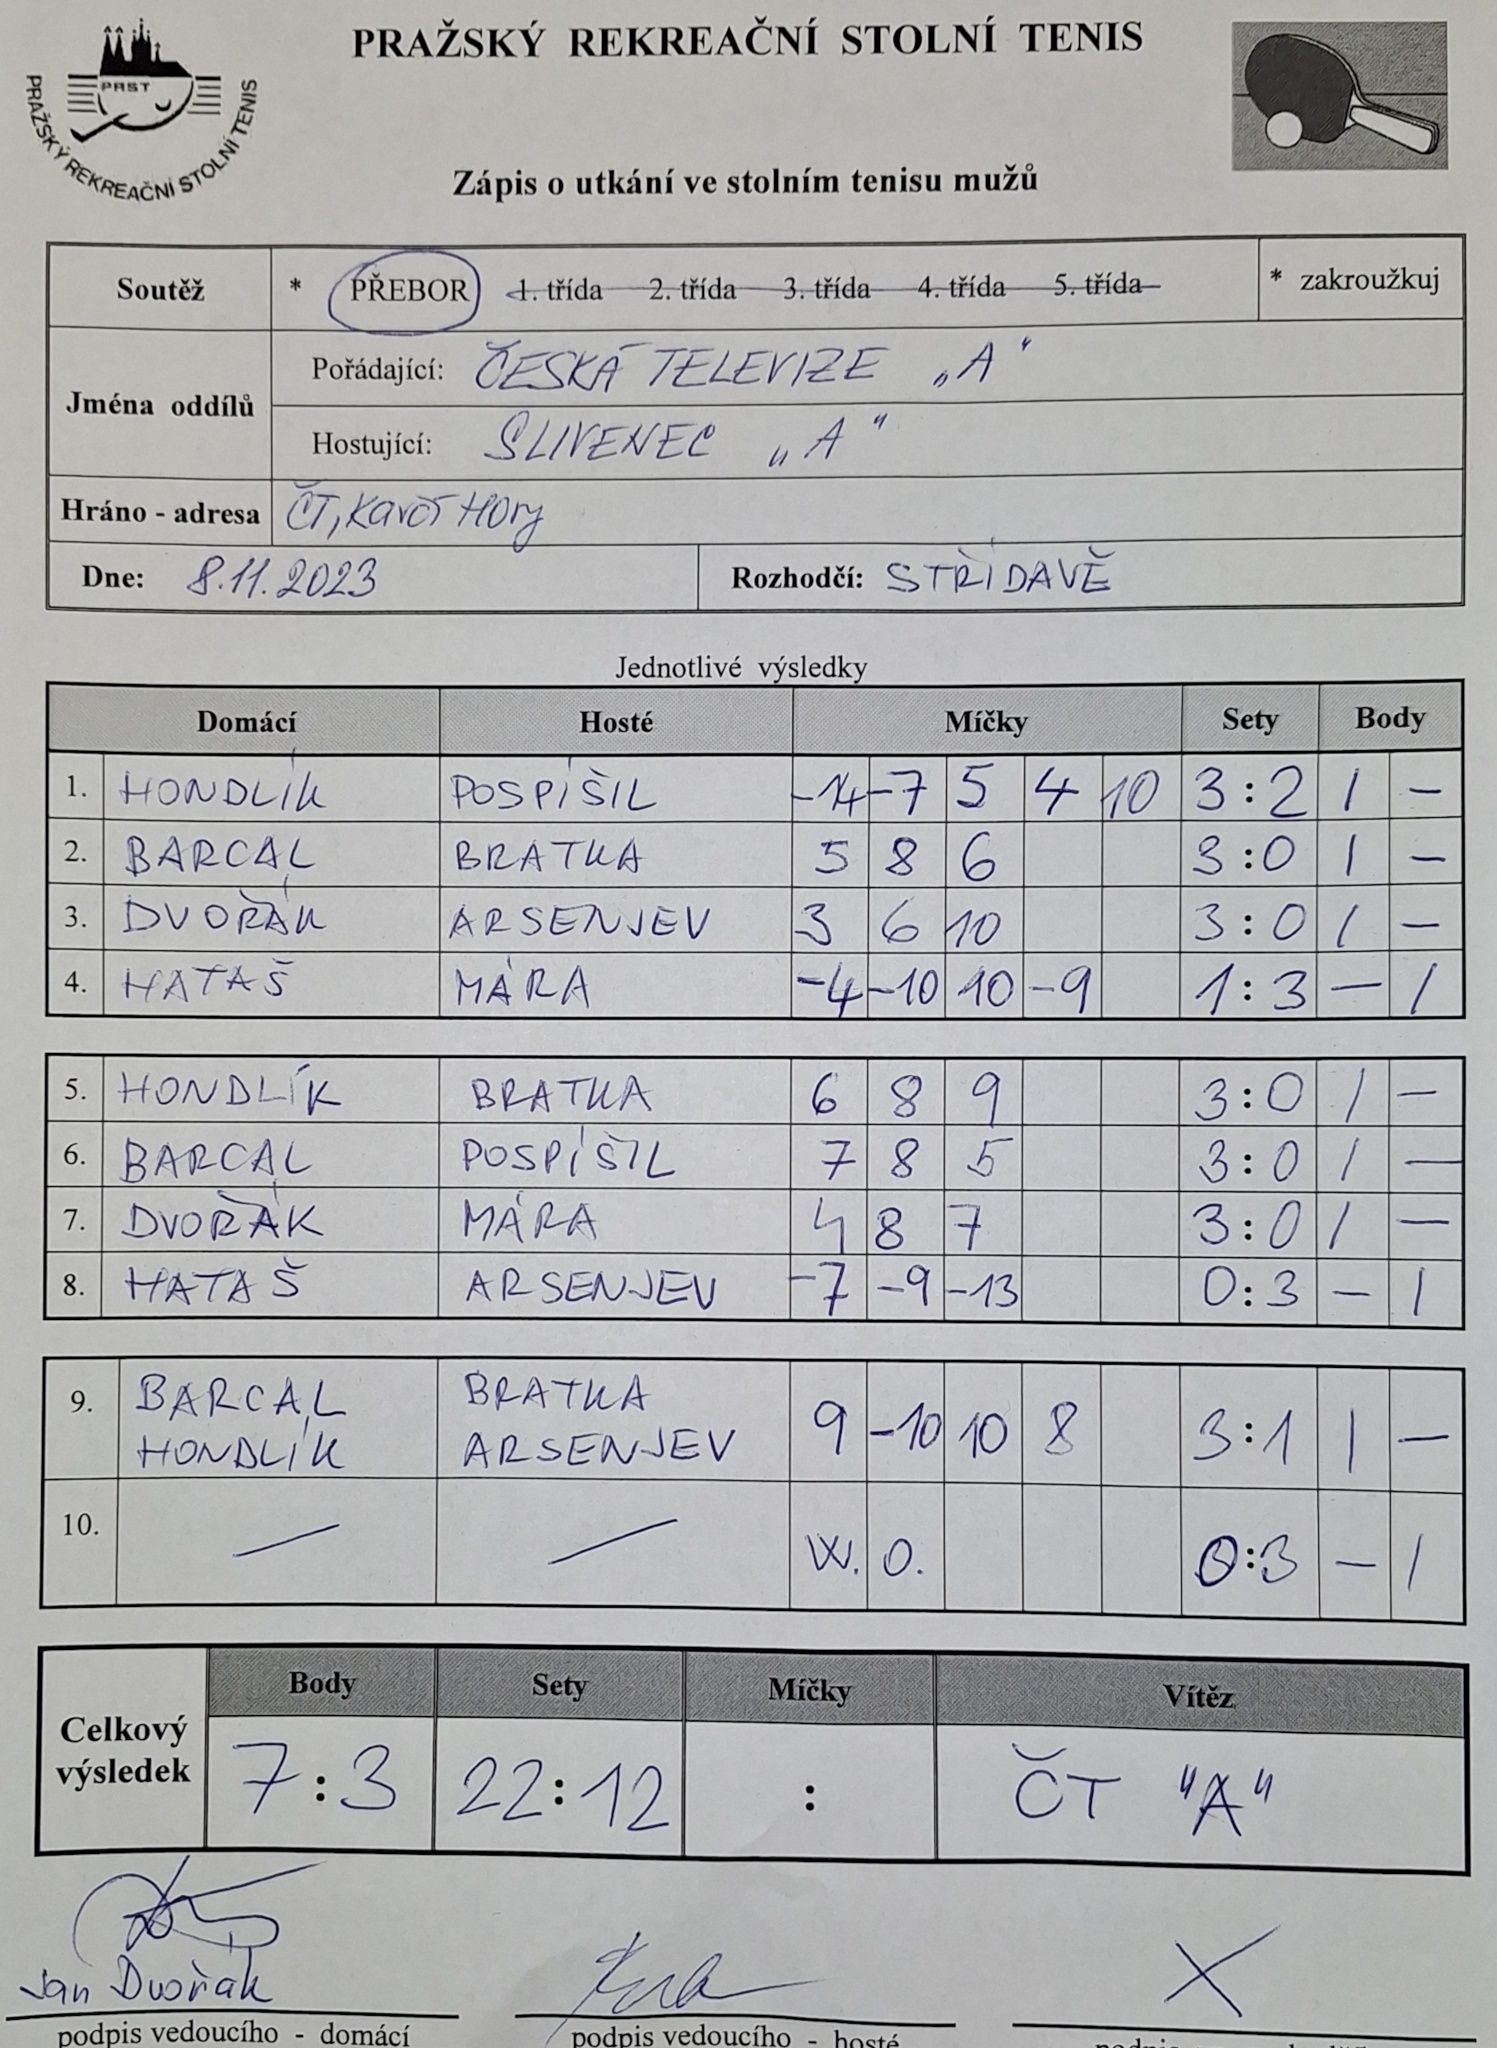 PRAŽSKÝ REKREAČNÍ STOLNÍ TENIS
PRST
PRAŽSKÝ REKREAČNÍ STOLNÍ TENIS
Zápis o utkání ve stolním tenisu mužů
Soutěž * PŘEBOR 1. třída 2. třída 3. třída 4. třída 5. třída * zakroužkuj
Jména oddílů
Pořádající: ČESKÁ TELEVIZE „A"
Hostující: SLIVENEC „A"
Hráno - adresa ČT, Kavčí Hory
Dne: 8.11.2023 Rozhodčí: STŘÍDAVĚ
Jednotlivé výsledky
Domácí Hosté Míčky Sety Body
1. HONDLÍK POSPÍŠIL -14 -7 5 4 10 3:2 1 -
2. BARCAL BRATKA 5 8 6 3:0 1 -
3. DVOŘÁK ARSENJEV 3 6 10 3:0 1 -
4. HATAŠ MÁRA -4 -10 10 -9 1:3 - 1
5. HONDLÍK BRATKA 6 8 9 3:0 1 -
6. BARCAL POSPÍŠIL 7 8 5 3:0 1 -
7. DVOŘÁK MÁRA 4 8 7 3:0 1 -
8. HATAŠ ARSENJEV -7 -9 -13 0:3 - 1
9. BARCAL BRATKA 9 -10 10 8 3:1 1 -
HONDLÍK ARSENJEV
10. — — W. O. 0:3 - 1
Celkový výsledek
Body Sety Míčky Vítěz
7:3 22:12 : ČT "A"
Jan Dvořák
podpis vedoucího - domácí podpis vedoucího - hosté